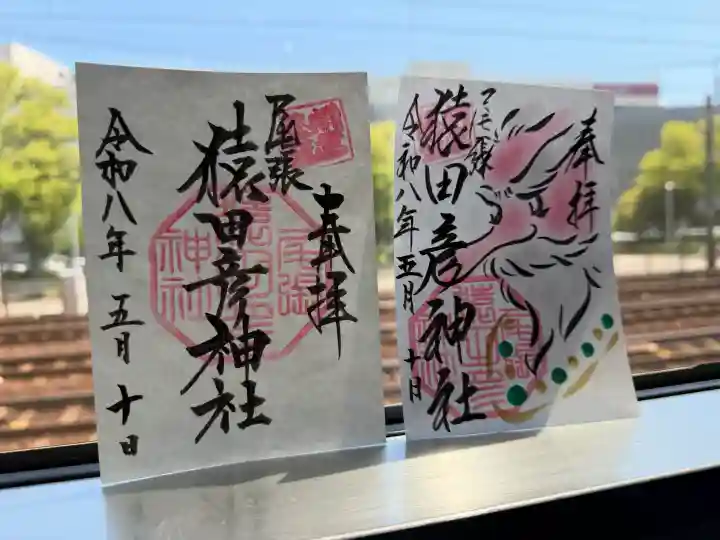 奉拝
尾張
猿田彦神社
令和八年 五月 十日
奉拝
猿田彦神社
令和八年五月 十日